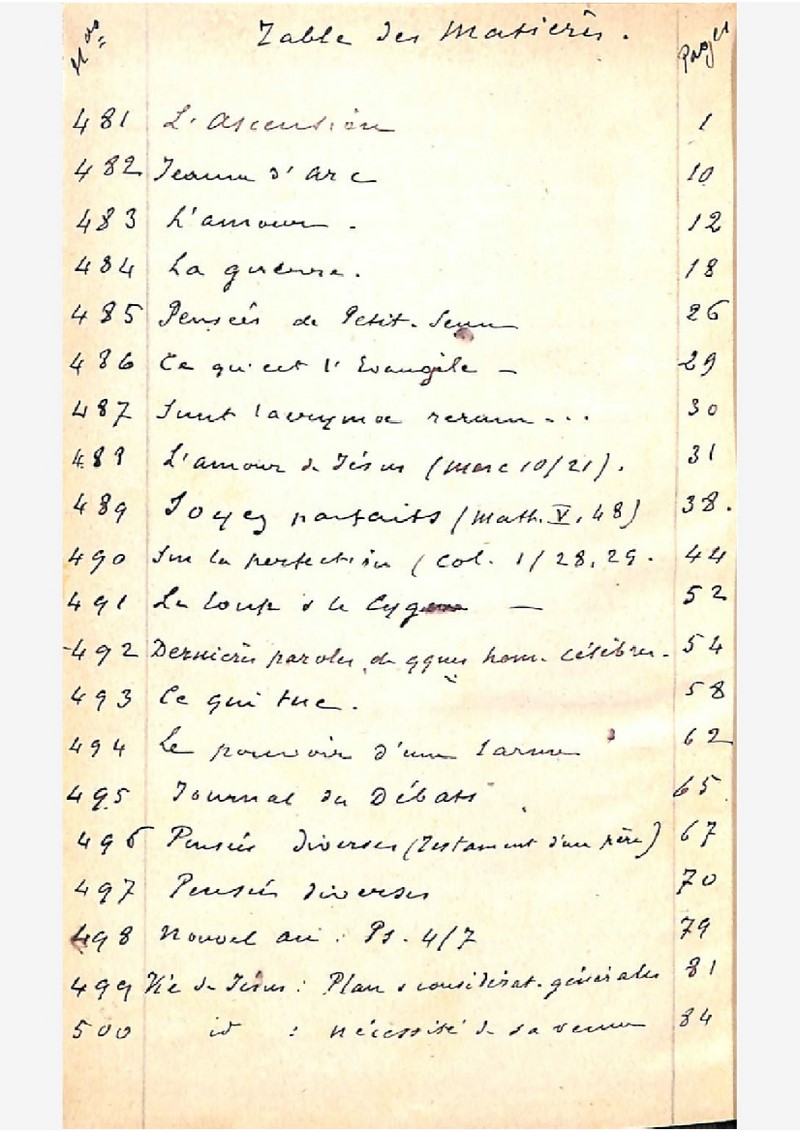 Nos Table des Matières. Pages
481 L'Ascension 1
482 Jeanne d'Arc 10
483 L'amour. 12
484 La guerre. 18
485 Pensées de Petit-Senn 26
486 Ce qu'est l'Evangile — 29
487 Sunt lacrymae rerum... 30
488 L'amour de Jésus (Marc 10/21). 31
489 Soyez parfaits (Math. V, 48) 38.
490 Sur la perfection (Col. 1/28, 29. 44
491 Le loup & le Cygne — 52
492 Dernières paroles de qques hom. célèbres. 54
493 Ce qui tue. 58
494 Le pouvoir d'une larme 62
495 Journal des Débats 65
496 Pensées diverses (Testament d'un père) 67
497 Pensées diverses 70
498 Nouvel an : Ps. 4/7 79
499 Vie de Jésus : Plan & considérat. générales 81
500 id : nécessité de sa venue 84